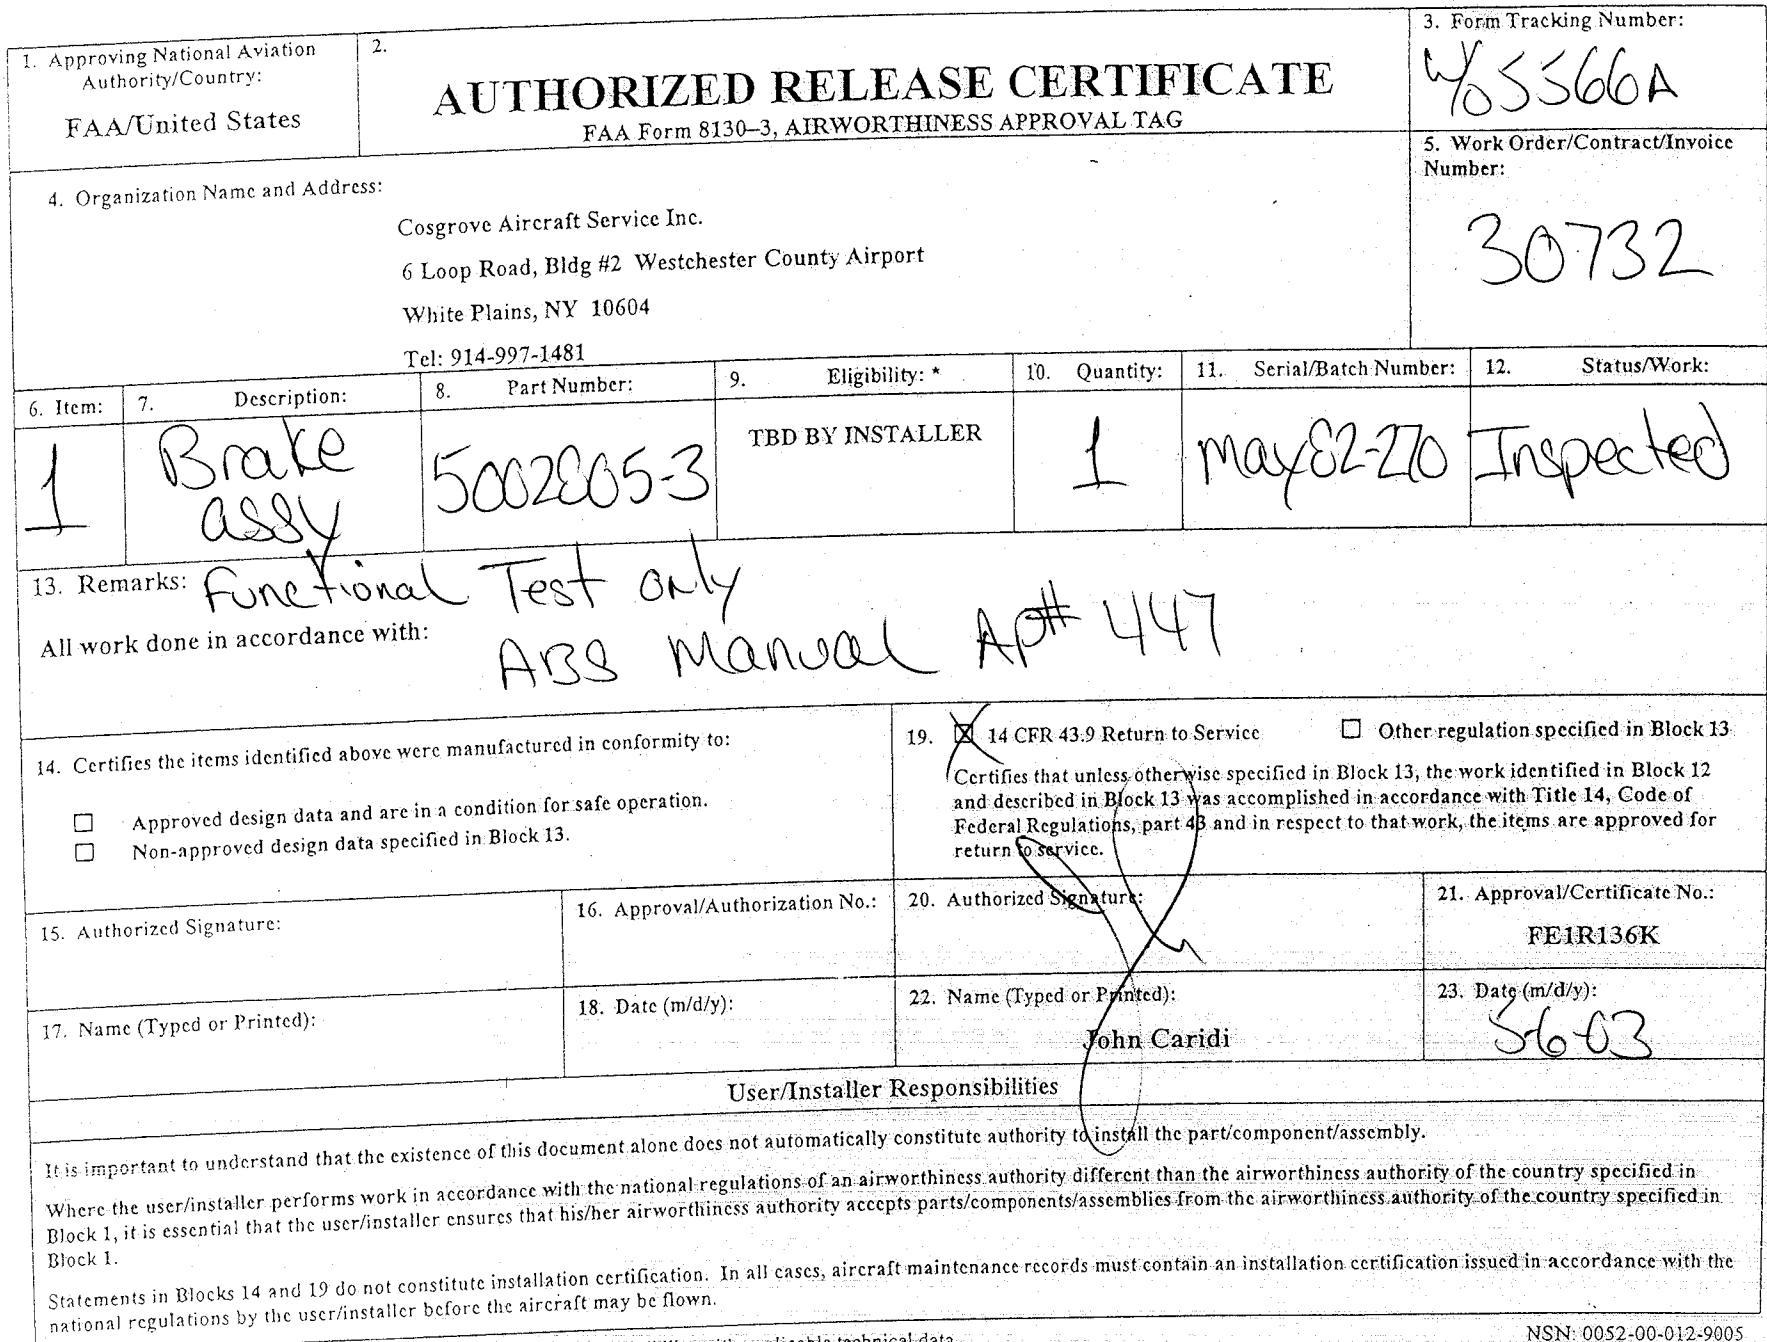 1. Approving National Aviation
Authority/Country:
FAA/United States
2.
AUTHORIZED RELEASE CERTIFICATE
FAA Form 8130–3, AIRWORTHINESS APPROVAL TAG
3. Form Tracking Number:
W/O 5566A
4. Organization Name and Address:
Cosgrove Aircraft Service Inc.
6 Loop Road, Bldg #2 Westchester County Airport
White Plains, NY 10604
Tel: 914-997-1481
5. Work Order/Contract/Invoice
Number:
30732
6. Item:
7. Description:
8. Part Number:
9. Eligibility: *
10. Quantity:
11. Serial/Batch Number:
12. Status/Work:
1
Brake
assy
5002805-3
TBD BY INSTALLER
1
May82-270
Inspected
13. Remarks: Functional Test only
All work done in accordance with:
ABS Manual Ap# 447
14. Certifies the items identified above were manufactured in conformity to:
☐ Approved design data and are in a condition for safe operation.
☐ Non-approved design data specified in Block 13.
19. ☒ 14 CFR 43.9 Return to Service ☐ Other regulation specified in Block 13
Certifies that unless otherwise specified in Block 13, the work identified in Block 12
and described in Block 13 was accomplished in accordance with Title 14, Code of
Federal Regulations, part 43 and in respect to that work, the items are approved for
return to service.
15. Authorized Signature:
16. Approval/Authorization No.:
20. Authorized Signature:
21. Approval/Certificate No.:
FE1R136K
17. Name (Typed or Printed):
18. Date (m/d/y):
22. Name (Typed or Printed):
John Caridi
23. Date (m/d/y):
5-6-03
User/Installer Responsibilities
It is important to understand that the existence of this document alone does not automatically constitute authority to install the part/component/assembly.
Where the user/installer performs work in accordance with the national regulations of an airworthiness authority different than the airworthiness authority of the country specified in
Block 1, it is essential that the user/installer ensures that his/her airworthiness authority accepts parts/components/assemblies from the airworthiness authority of the country specified in
Block 1.
Statements in Blocks 14 and 19 do not constitute installation certification. In all cases, aircraft maintenance records must contain an installation certification issued in accordance with the
national regulations by the user/installer before the aircraft may be flown.
applicable technical data
NSN: 0052-00-012-9005